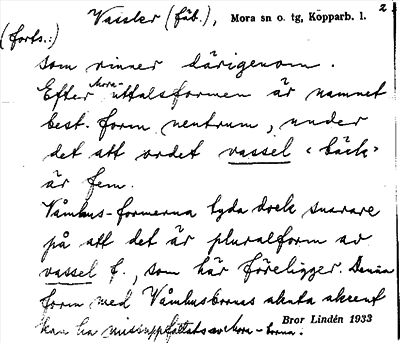 Vassler (fäb.), Mora sn o. tg, Kopparb. l. 2
(forts.:)
som rinner därigenom.
Efter Mora-uttalsformen är namnet
best. form neutrum, under
det att ordet vassel 'bäck'
är fem.
Våmhus-formerna tyda dock snarare
på att det är pluralform av
vassel f., som här föreligger. Denna
form med Våmhusbornas akuta akcent
kan ha missuppfattats av Mora-borna.
Bror Lindén 1933